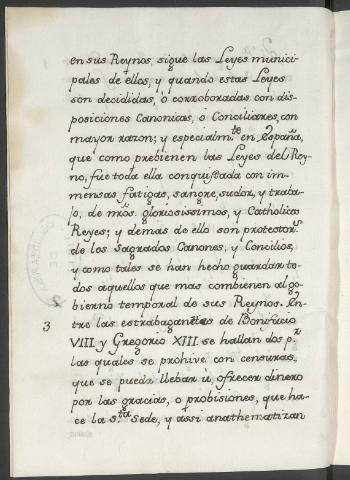 en sus Reynos, sigue las Leyes munici-
pales de ellos, y quando estas Leyes
son decididas, ò corroboradas con dis-
posiciones Canonicas, o Conciliares, con
mayor razon; y especialm.te en España,
que como prebienen las Leyes del Rey-
no, fue toda ella conquistada con im-
mensas fatigas, sangre, sudor, y trata-
jo, de nros. gloriosissimos, y Catholicos
Reyes; y demas de ello son protector.s
de los Sagrados Canones, y Concilios,
y como tales se han hecho guardar to-
dos aquellos que mas combienen al go-
bierno temporal de sus Reynos. En-
3 tre las estrabagantes de Bonifacio
VIII. y Gregorio XIII. se hallan dos p.r
las quales se prohive con censuras,
que se pueda llebar ù, ofrecer dinero
por las gracias, o probisiones, que ha-
ce la S.ta Sede, y assi anathematizan